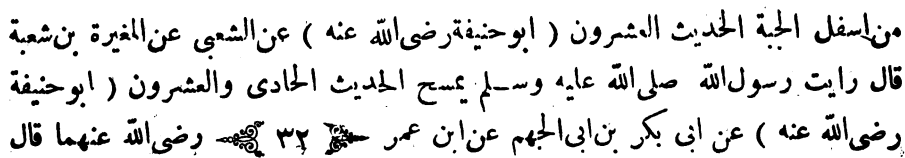 من اسفل الجبة الحديث العشرون ( ابو حنيفة رضى الله عنه ) عن الشعبى عن المغيرة بن شعبة
قال رايت رسول الله صلى الله عليه وسلم يمسح الحديث الحادى والعشرون ( ابو حنيفة
رضى الله عنه ) عن ابى بكر بن ابى الجهم عن ابن عمر ٣٢ رضى الله عنهما قال